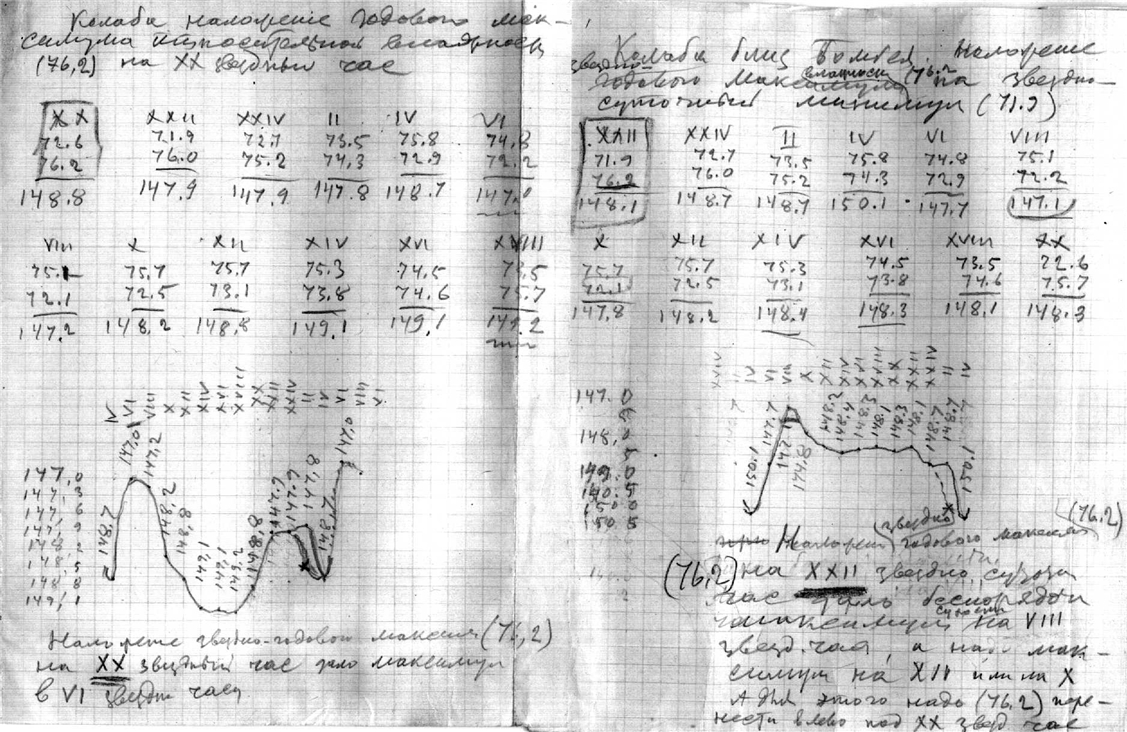 Колаба наложение годового мак-
симума относительной влажности
(76,2) на XX звездный час
XX XXII XXIV II IV VI
72.6 71.9 72.7 73.5 75.8 74.8
76.2 76.0 75.2 74,3 72.9 72.2
148.8 147.9 147.9 147.8 148.7 147.0
VIII X XII XIV XVI XVIII
75.1 75.7 75.7 75.3 74.5 73.5
72.1 72.5 73.1 73.8 74.6 75.7
147.2 148,2 148.8 149.1 149,1 149.2
IV VI VIII X XII XIV XVI XVIII XX XXII XXIV II IV VI VIII
147,0
147,3
147,6
147,9
148,2
148,5
148,8
149,1
148.7 147,0 147,2 148,2 148,8 149,1 149,1 149,2 148,8 147,9 147,9 147,8 148,7 147,0
Наложение звездно-годового максим (76,2)
на XX звездный час дало максимум
в VI звездн часа
Колаба близ Бомбея. Наложение
звездно
годового максимума влажности (76.2 на звездно-
суточный минимум (71.9)
XXII XXIV II IV VI VIII
71.9 72.7 73.5 75.8 74.8 75.1
76.2 76.0 75.2 74.3 72.9 72.2
148.1 148.7 148.7 150.1 147.7 147.1
X XII XIV XVI XVIII XX
75.7 75.7 75.3 74.5 73.5 72.6
72.1 72.5 73.1 73.8 74.6 75.7
147,8 148.2 148.4 148.3 148.1 148.3
147.0
148,0
149.0
150.0
150 5
150.1 147.7 147.1 148.2 148.4 148.3 148.1 148.3 148.1 148.7 148.7 150.1
Наложен звездно годового максим (76.2)
(76,2) на XXII звездно суточн
час дало беспорядок
максимум на VIII
звезд час, а надо мак-
симум на XII или на X
А для этого надо (76.2) пере-
нести влево под XX звезд час